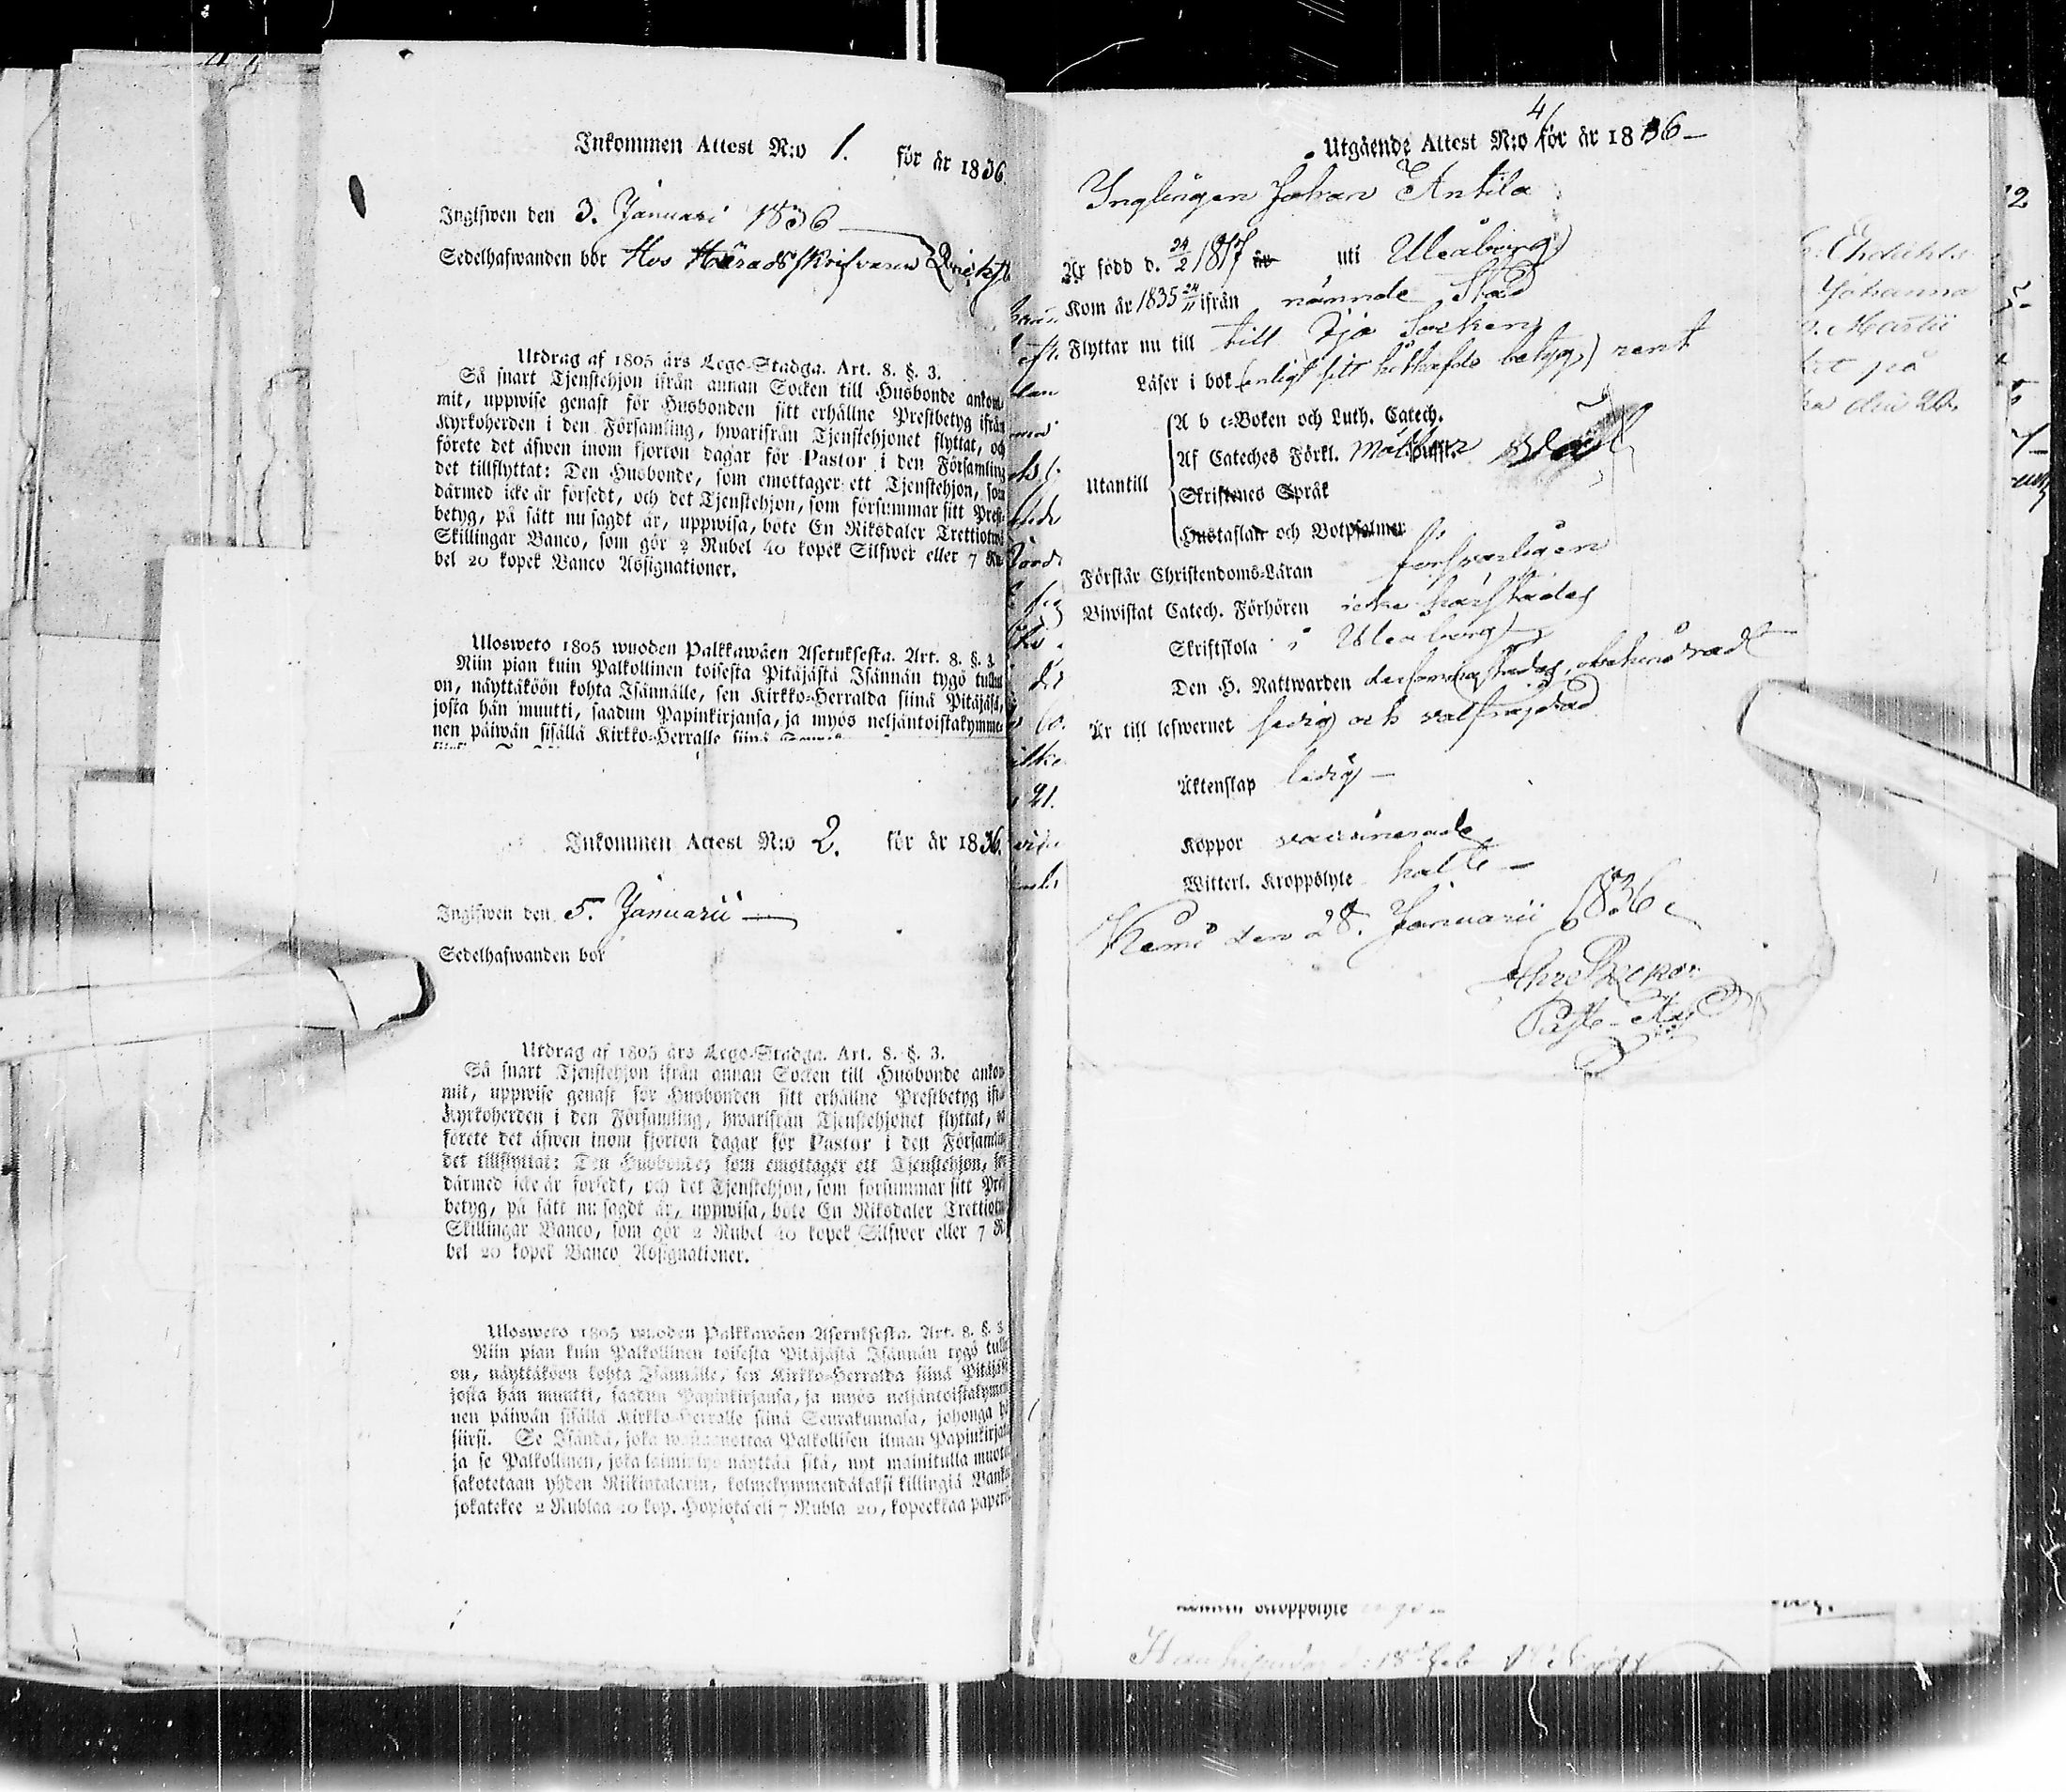 Inkommen Attest N:o 1. för år 1836.
Ingifwen den 3. Januari 1836
Sedelhafwanden bor Hos Häradsskrifvaren
Utdrag af 1805 års Lego-Stadga. Art. 8. §. 3.
Så snart Tjenstehjon ifrån annan Socken till Husbonde ankom-
mit, uppwise genast för Husbonden sitt erhållne Prestbetyg ifrån
Kyrkoherden i den Församling, hwarifrån Tjenstehjonet flyttat, och
förete det äfwen inom fjorton dagar för Pastor i den Församling
det tillflyttat: Den Husbonde, som emottager ett Tjenstehjon, som
därmed icke är försedt, och det Tjenstehjon, som försummar sitt Prest-
betyg, på sätt nu sagdt är, uppwisa, böte En Riksdaler Trettiotwå
Skillingar Banco, som gör 2 Rubel 40 kopek Silfwer eller 7 Ru-
bel 20 kopek Banco Assignationer.
Ulosweto 1805 wuoden Palkkawäen Asetuksesta. Art. 8. §. 3.
Niin pian kuin Palkollinen toisesta Pitäjästä Isännän tygö tullut
on, näyttäköön kohta Isännälle, sen Kirkko-Herralda siinä Pitäjäsä,
josta hän muutti, saadun Papinkirjansa, ja myös neljäntoistakymme-
nen päiwän sisällä Kirkko-Herralle siinä
Inkommen Attest N:o 2. för år 1836.
Ingifwen den 5. Januarii
Sedelhafwanden bor
Utdrag af 1805 års Lego-Stadga. Art. 8. §. 3.
Så snart Tjenstehjon ifrån annan Socken till Husbonde ankom-
mit, uppwise genast för Husbonden sitt erhållne Prestbetyg ifrån
Kyrkoherden i den Församling, hwarifrån Tjenstehjonet flyttat, och
förete det äfwen inom fjorton dagar för Pastor i den Församling
det tillflyttat: Den Husbonde, som emottager ett Tjenstehjon, som
därmed icke är försedt, och det Tjenstehjon, som försummar sitt Prest-
betyg, på sätt nu sagdt är, uppwisa, böte En Riksdaler Trettiotwå
Skillingar Banco, som gör 2 Rubel 40 kopek Silfwer eller 7 Ru-
bel 20 kopek Banco Assignationer.
Ulosweto 1805 wuoden Palkkawäen Asetuksesta. Art. 8. §. 3
Niin pian kuin Palkollinen toisesta Pitäjästä Isännän tygö tullut
on, näyttäköön kohta Isännälle, sen Kirkko-Herralda siinä Pitäjäsä
josta hän muutti, saadun Papinkirjansa, ja myös neljäntoistakymme-
nen päiwän sisällä Kirkko-Herralle siinä Seurakunnasa, johonga hän
siirsi. Se Isändä, joka wastaanottaa Palkollisen ilman Papinkirjata
ja se Palkollinen, joka laiminlyö näyttää sitä, nyt mainitulla muotoa
sakotetaan yhden Riikintalarin, kolmekymmendäkaksi killingiä Banko
jokatekee 2 Rublaa 40 kop. Hopiota eli 7 Rubla 20, kopeekkaa paperi
Utgående Attest N:o 4/ för år 1836
Ynglingen Johan Antila
Är född d. 24/2 1817 uti Uleåborg
Kom år 1835 24/11 ifrån nämnde Stad
Flyttar nu till till Ijo Socken
Läser i bok (enligt sitt hithafde betyg) rent
A b c-Boken och Luth. Catech.
Af Cateches Förkl.
Utantill
Skriftenes Språk
Hustaflan och Botpsalmer
Förstår Christendoms-Läran försvarligen
Biwistat Catech. Förhören icke härstädes
Skriftskola i Uleåborg
Den H. Nattwarden
Är till lefwernet ledig och välfrejdad
Äktenskap ledig
Koppor vaccinerade
Witterl. Kroppslyte halte
Kemi den 28. Januarii 1836